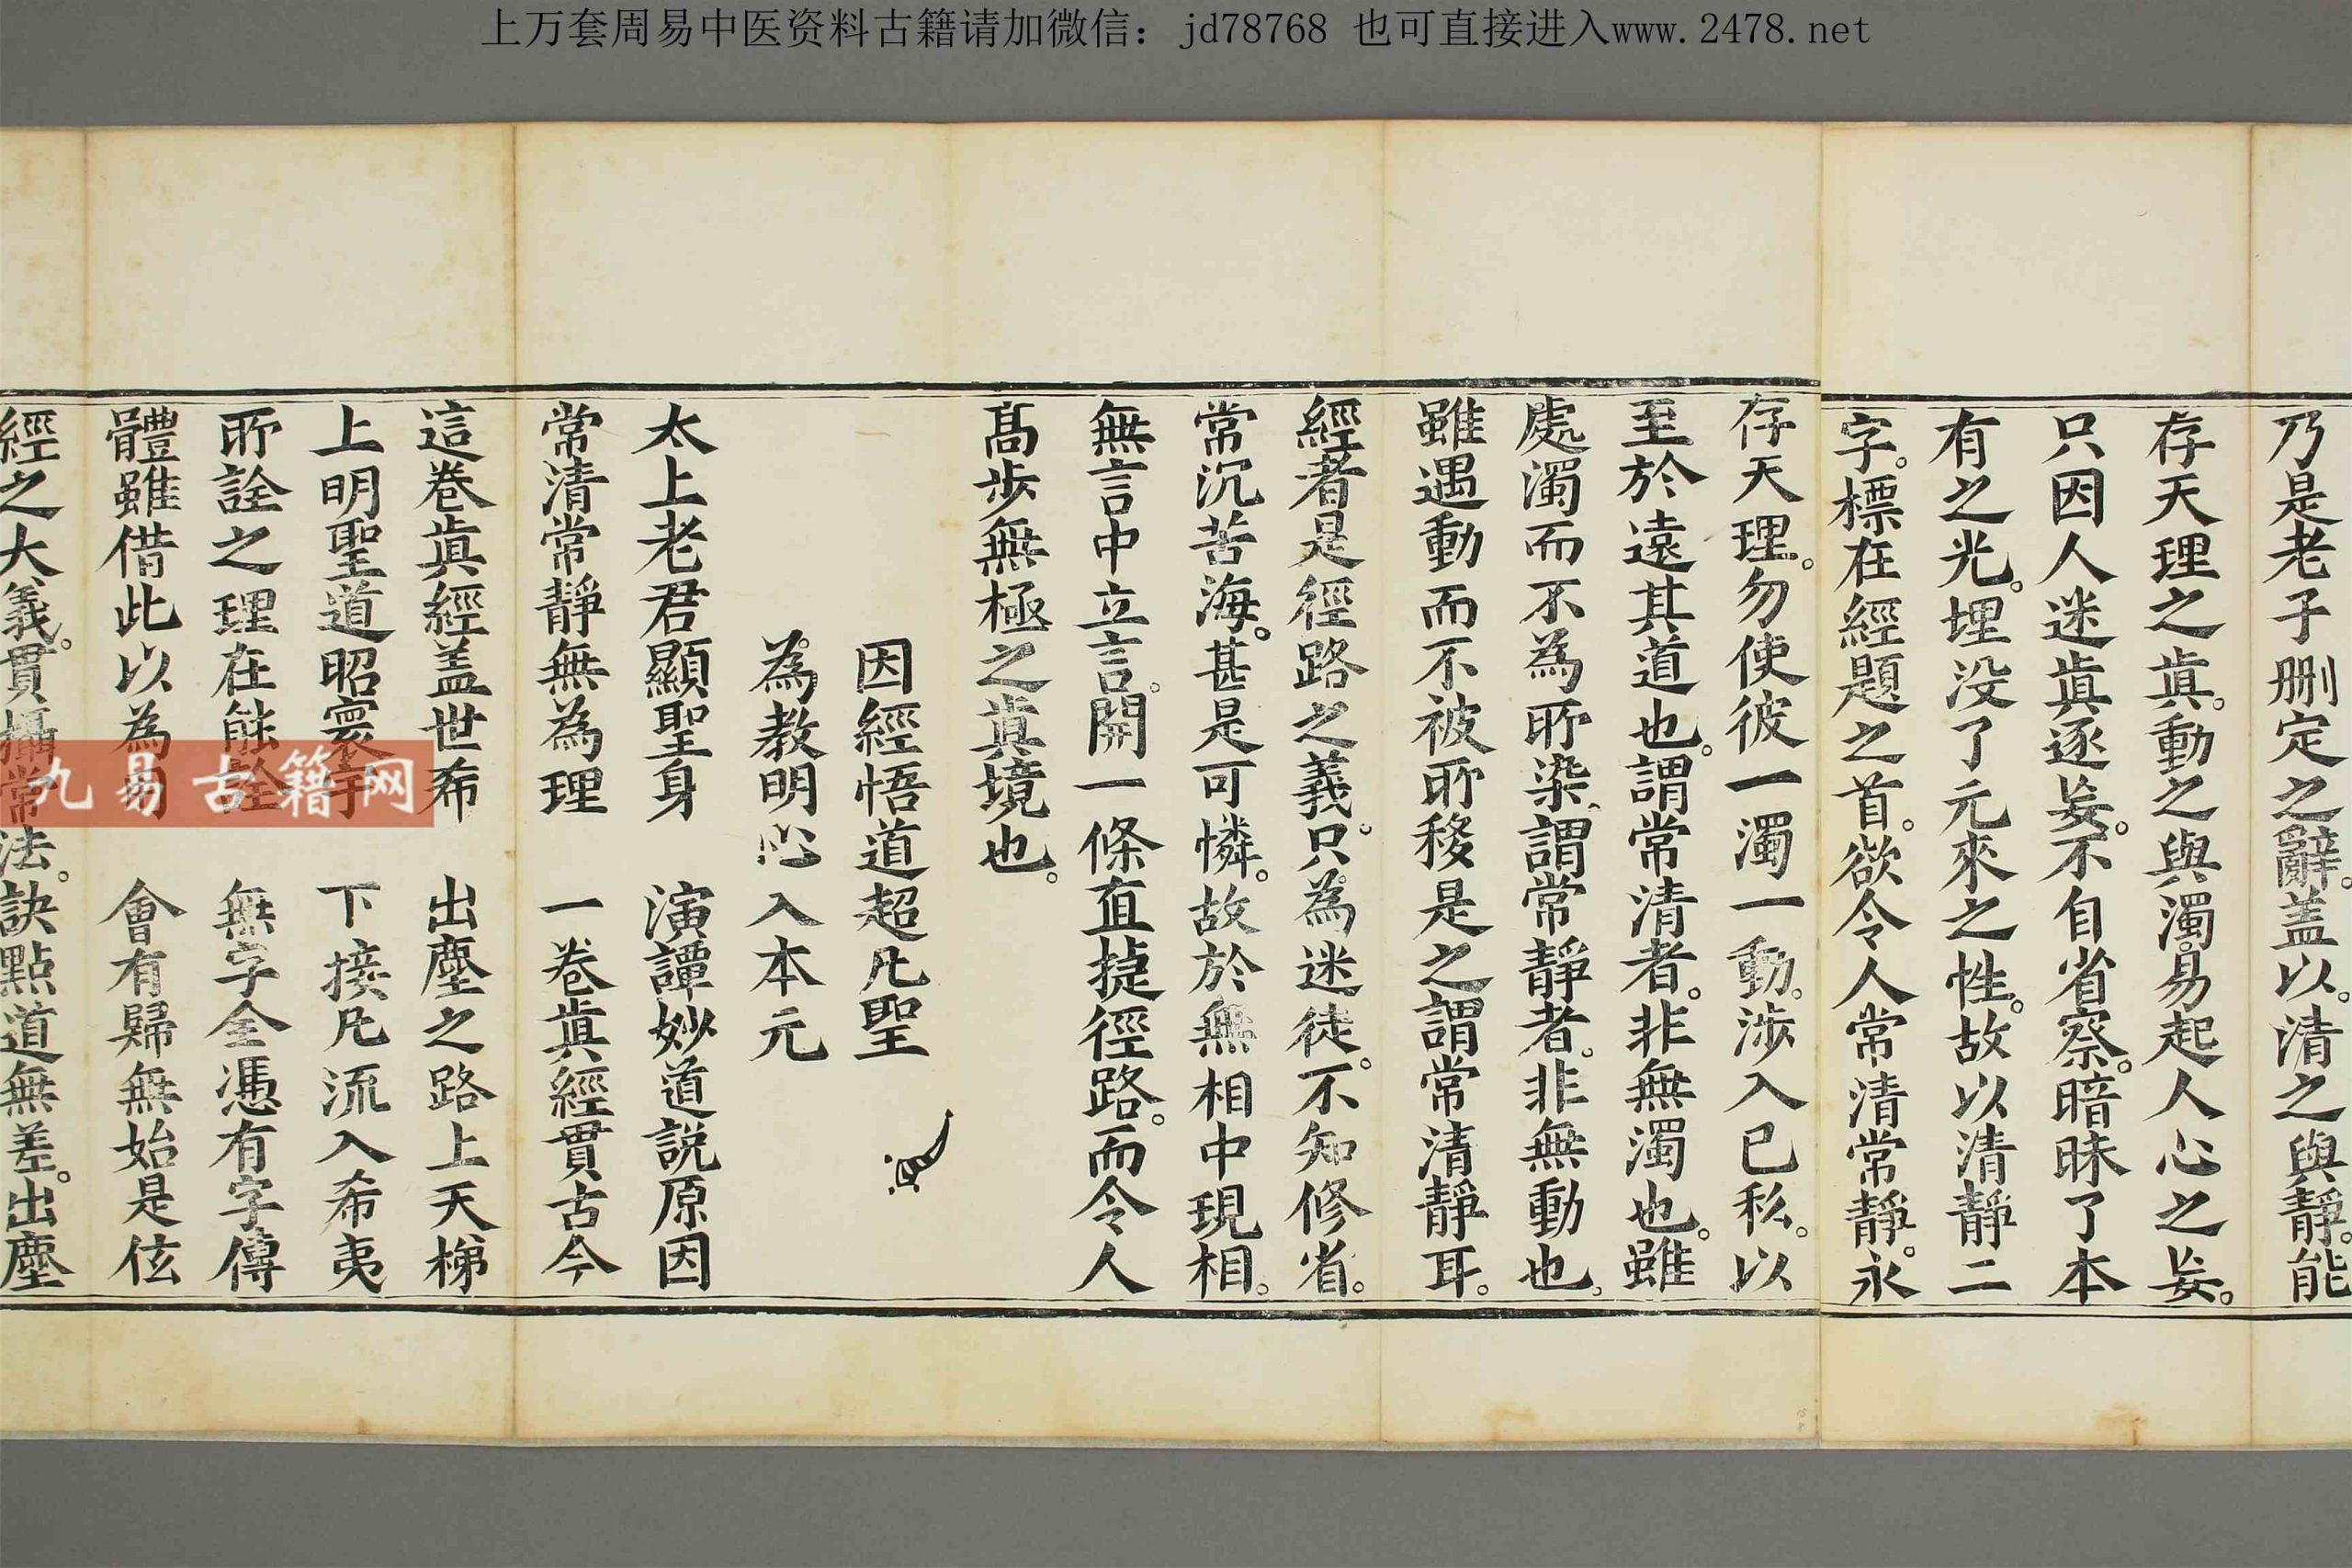 上万套周易中医资料古籍请加微信：jd78768 也可直接进入www.2478.net
乃是老子刪定之辭。盖以。清之與靜。能
存天理之眞。動之與濁。易起人心之妄。
只因人迷眞逐妄。不自省察。暗昧了本
有之光。埋没了元來之性。故以清靜二
字。標在經題之首。欲令人常清常靜。永
存天理。勿使彼一濁一動。涉入已私。以
至於遠其道也。謂常清者。非無濁也。雖
處濁而不為所染。謂常靜者。非無動也。
雖遇動而不被所移是之謂常清靜耳。
經者是徑路之義。只為迷徒。不知修省。
常沉苦海。甚是可憐。故於無相中現相。
無言中立言。開一條直捷徑路。而令人
髙步無極之真境也。
因經悟道超凡聖
為教明心入本元
太上老君顯聖身 演譚妙道説原因
常清常靜無為理 一卷眞經貫古今
這卷眞經盖世希 出塵之路上天梯
上明聖道昭寰宇 下接凡流入希夷
所詮之理在能詮 無字全憑有字傳
體雖借此以為 會有歸無始是伭
經之大義。貫攝常法。訣點道無差。出塵
九易古籍网